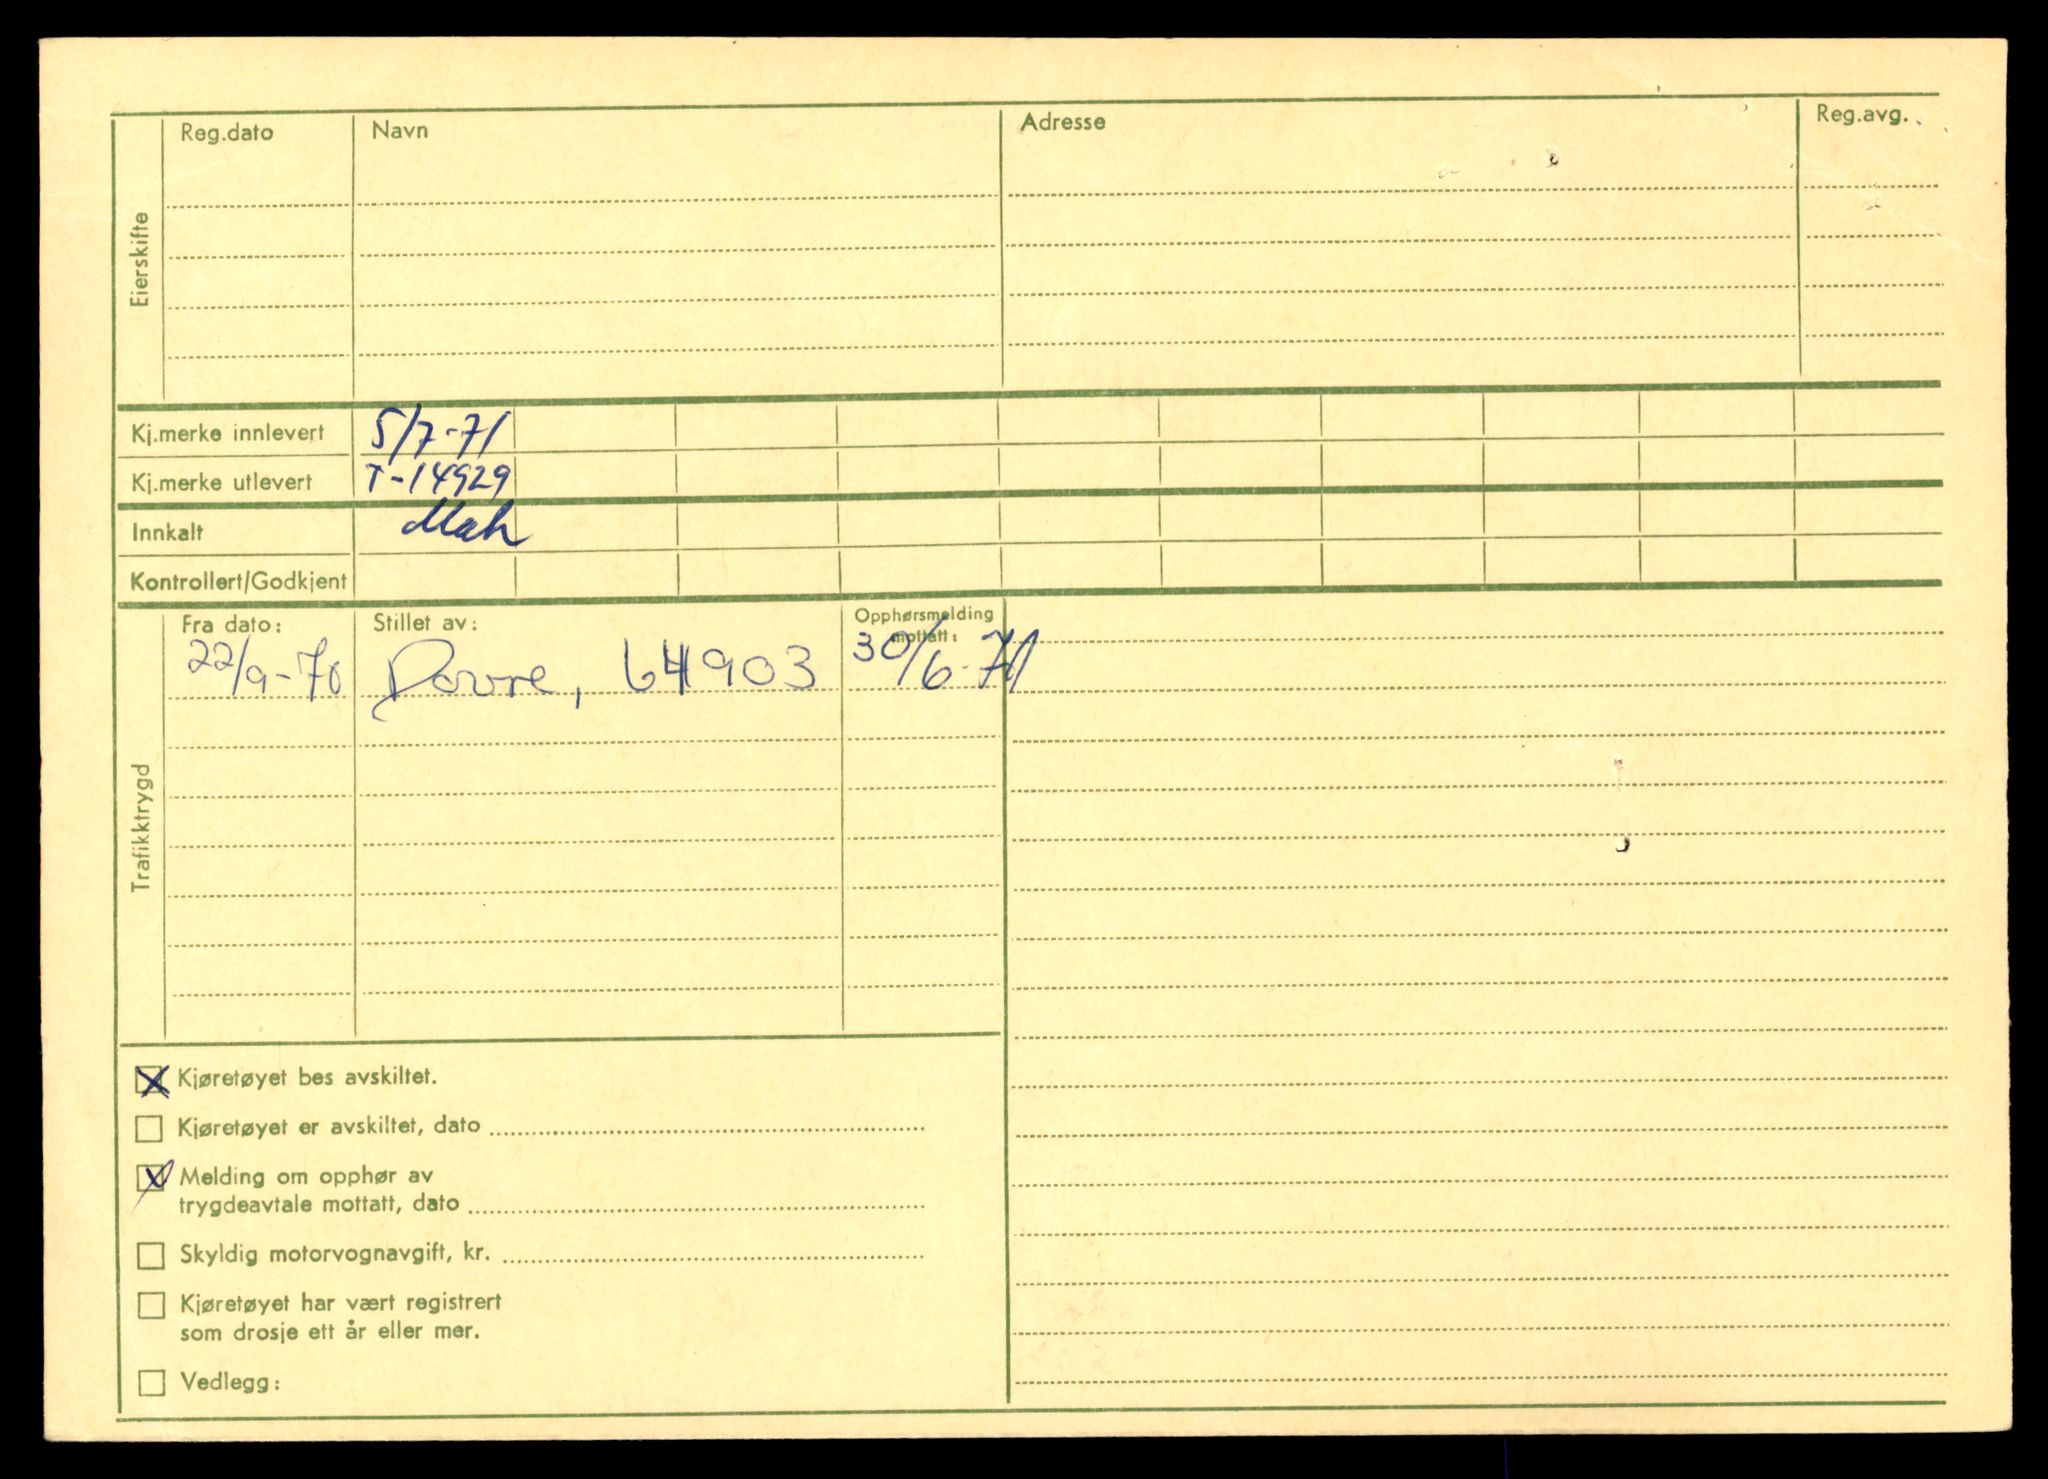 Eierskifte
Reg.dato Navn Adresse Reg.avg.
Kj.merke innlevert 5/7-71
Kj.merke utlevert T-14929
Innkalt
Kontrollert/Godkjent
Trafikktrygd
Fra dato: Stillet av: Opphørsmelding mottatt:
22/9-70 Dovre, 64903 30/6-71
Kjøretøyet bes avskiltet.
Kjøretøyet er avskiltet, dato
Melding om opphør av
trygdeavtale mottatt, dato
Skyldig motorvognavgift, kr.
Kjøretøyet har vært registrert
som drosje ett år eller mer.
Vedlegg: